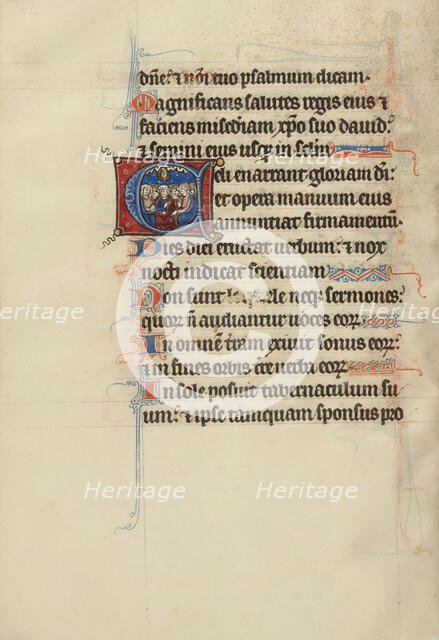 dñe: & noĩ tuo psalmum dicam.
Magnificans salutes regis eius &
faciens miſediam xp̄o suo dauid:
& semini eius usq; in sclm̄
Celi enarrant gloriam di:
et opera manuum eius
annuntiat firmamentũ.
Dies diei eructat uerbum: & nox
nocti indicat scientiam
Non sunt neq; sermones:
quoꝝ ñ audiantur uoces eoꝝ
In omnẽ trãm exiuit sonus eoꝝ:
& in fines orbis eoꝝ
In sole posuit tabernaculum su
um: & ipse tamquam sponsus pro
Heritage
Heritage
Heritage
Heritage
Heritage
Heritage